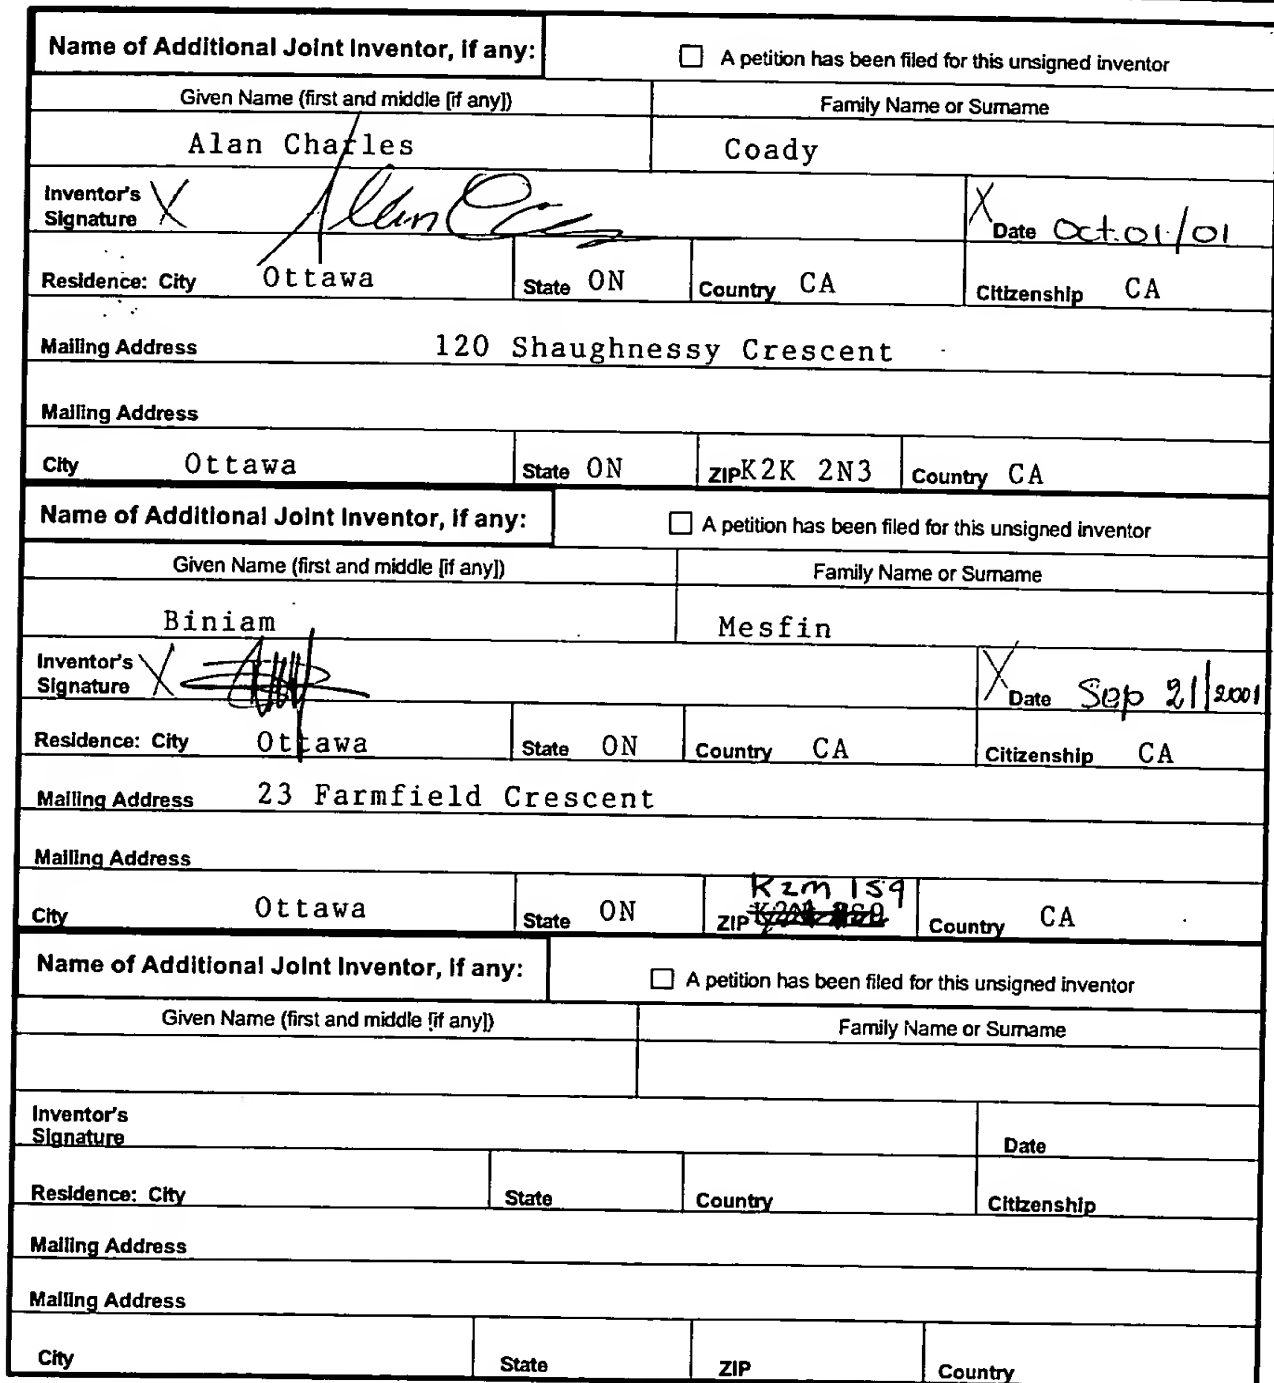 Name of Additional Joint Inventor, if any: A petition has been filed for this unsigned inventor
Given Name (first and middle [if any]) Family Name or Surname
Alan Charles Coady
Inventor's Signature X Alan X Date Oct.01/01
Residence: City Ottawa State ON Country CA Citizenship CA
Mailing Address 120 Shaughnessy Crescent
Mailing Address
City Ottawa State ON ZIP K2K 2N3 Country CA
Name of Additional Joint Inventor, if any: A petition has been filed for this unsigned inventor
Given Name (first and middle [if any]) Family Name or Surname
Biniam Mesfin
Inventor's Signature X X Date Sep 21/2001
Residence: City Ottawa State ON Country CA Citizenship CA
Mailing Address 23 Farmfield Crescent
Mailing Address
K2M 1S9
City Ottawa State ON ZIP Country CA
Name of Additional Joint Inventor, if any: A petition has been filed for this unsigned inventor
Given Name (first and middle [if any]) Family Name or Surname
Inventor's Signature Date
Residence: City State Country Citizenship
Mailing Address
Mailing Address
City State ZIP Country